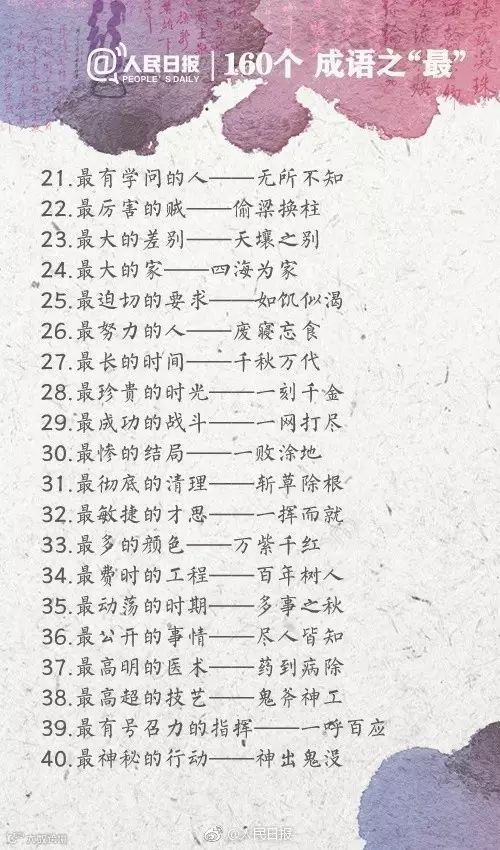 @人民日报 PEOPLE'S DAILY 160个 成语之“最”
21.最有学问的人——无所不知
22.最厉害的贼——偷梁换柱
23.最大的差别——天壤之别
24.最大的家——四海为家
25.最迫切的要求——如饥似渴
26.最努力的人——废寝忘食
27.最长的时间——千秋万代
28.最珍贵的时光——一刻千金
29.最成功的战斗——一网打尽
30.最惨的结局——一败涂地
31.最彻底的清理——斩草除根
32.最敏捷的才思——一挥而就
33.最多的颜色——万紫千红
34.最费时的工程——百年树人
35.最动荡的时期——多事之秋
36.最公开的事情——尽人皆知
37.最高明的医术——药到病除
38.最高超的技艺——鬼斧神工
39.最有号召力的指挥——一呼百应
40.最神秘的行动——神出鬼没
@人民日报